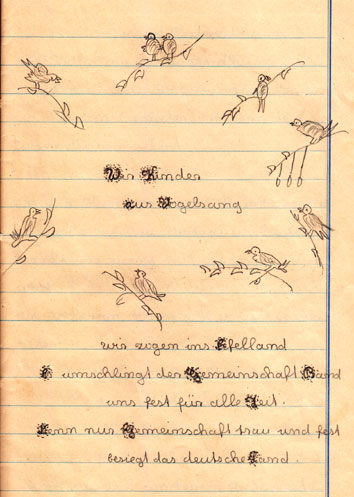 Wir Kinder
aus Vogelsang
wir zogen ins Eifelland
umschlingt der Gemeinschaft Band
uns fest für alle Zeit.
Denn nur Gemeinschaft treu und fest
besiegt das deutsche Land.